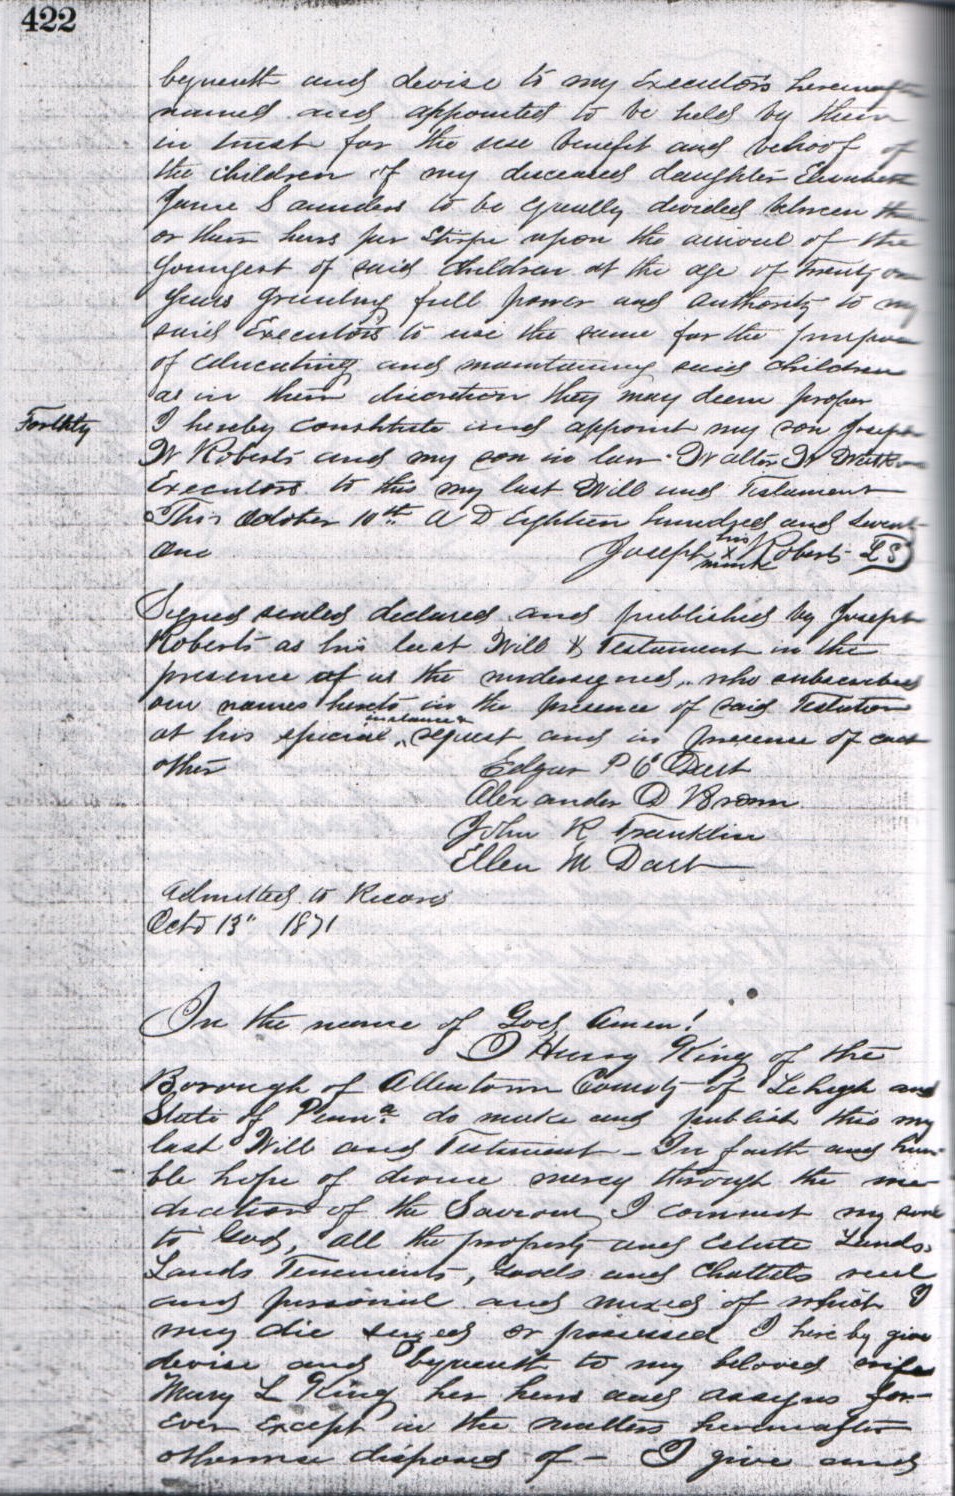 422
bequeath and devise to my Executors hereinafter
named and appointed to be held by them
in trust for the use benefit and behoof of
the children of my deceased daughter Elizabeth
Jane Saunders to be equally divided between them
or their heirs per Stirpe upon the arrival of the
youngest of said children at the age of twenty one
years granting full power and authority to my
said Executors to use the same for the purpose
of educating and maintaining said children
as in their discretion they may deem proper
Forthly
I hereby constitute and appoint my son Joseph
W Roberts and my son in law Walter W
Executors to this my last Will and Testament
This October 10th A D Eighteen hundred and seventy
One Joseph his x mark Roberts L S
Signed sealed declared and published by Joseph
Roberts as his last Will & Testament in the
presence of us the undersigned, who subscribed
our names hereto in the presence of said Testator
at his special instance & request and in presence of each
other Edgar P C Dart
Alexander D Brown
John R Franklin
Ellen M Dart
Admitted to Record
Octo 13" 1871
In the name of God Amen!
I Henry King of the
Borough of Allentown County of Lehigh and
State of Penna. do make and publish this my
last Will and Testament - In faith and hum-
ble hope of divine mercy through the me-
diation of the Saviour, I commit my soul
to God, All the property and Estate Lands
Lands Tenements, Goods and Chattels real
and personal and mixed of which I
may die seized or possessed I hereby give
devise and bequeath to my beloved wife
Mary L King her heirs and assigns for-
ever except in the matters hereinafter
otherwise disposed of - I give and